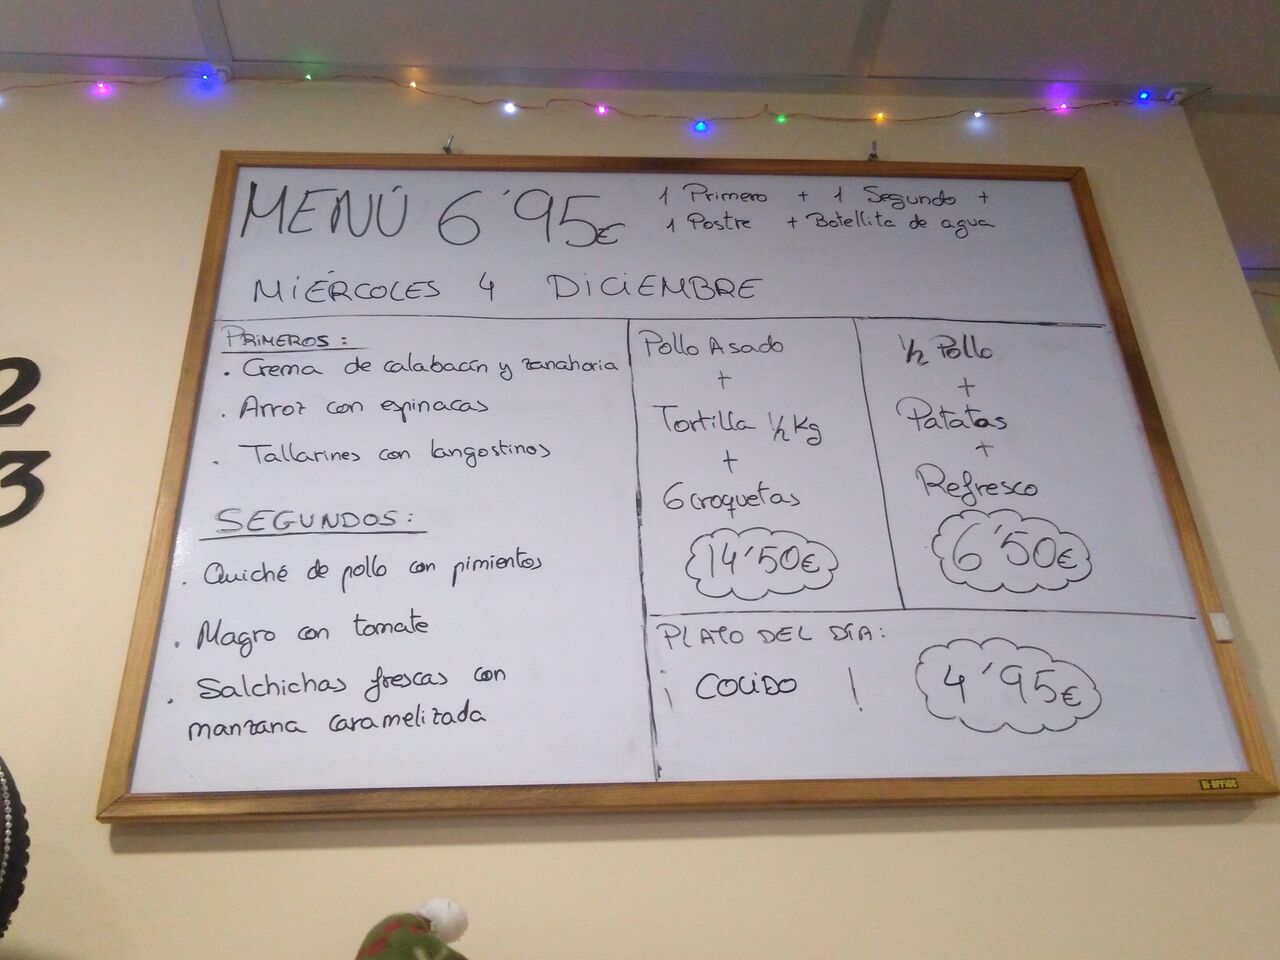 MENÚ 6'95€
1 Primero + 1 Segundo +
1 Postre + Botellita de agua
MIÉRCOLES 4 DICIEMBRE
PRIMEROS:
. Crema de calabacín y zanahoria
. Arroz con espinacas
. Tallarines con langostinos
SEGUNDOS:
. Quiché de pollo con pimientos
. Magro con tomate
. Salchichas frescas con
manzana caramelizada
Pollo Asado
+
Tortilla 1/2 Kg
+
6 croquetas
14'50€
1/2 Pollo
+
Patatas
+
Refresco
6'50€
PLATO DEL DÍA:
¡ COCIDO !
4'95€
BI-OFFICE
2
3